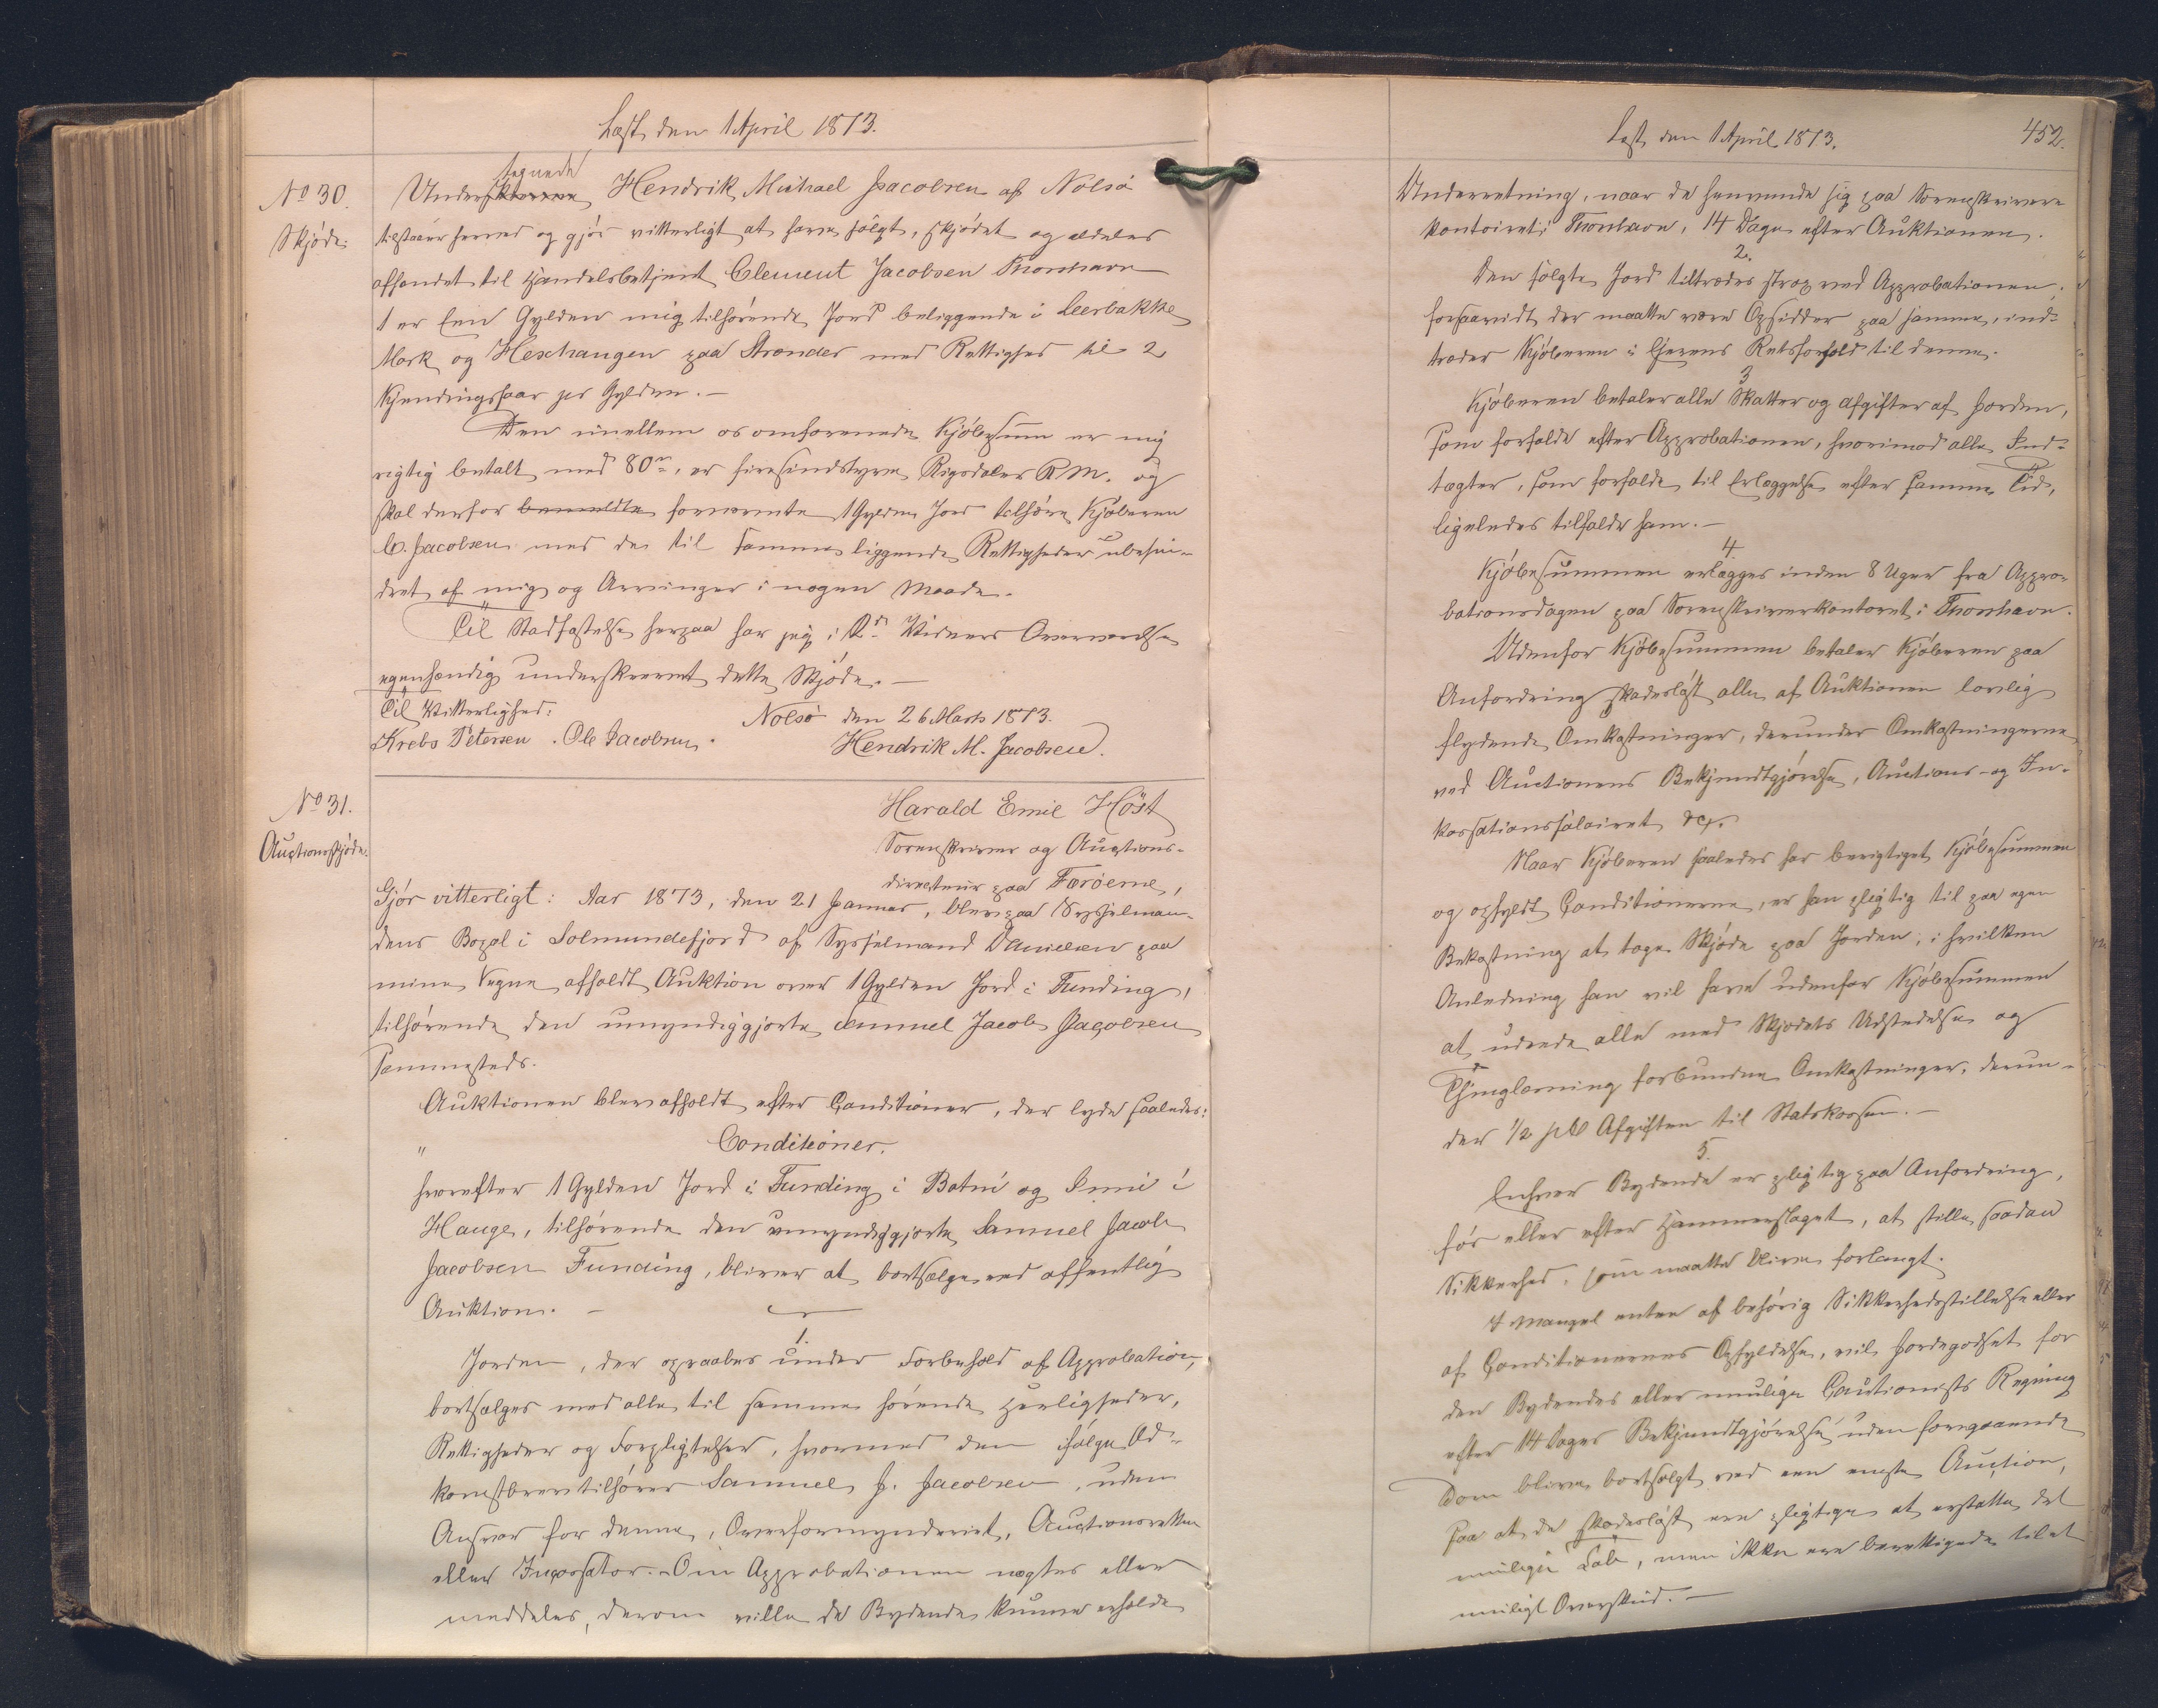 Læst den 1 April 1873.
No 30.
Skjøde.
Understegnede Hendrik Michael Jacobsen af Nolsø
tilstaaer herved og gjør vitterligt at have solgt, skjødet og aldeles
afhændet til Handelsbetjent Clement Jacobsen Thorshavn
1 er Een Gylden mig tilhørende Jord beliggende i Leerbakke
Mark og Heshaugen paa Strander med Rettighed til 2
Kjendingsfaar pr Gylden.-
Den imellem os omforenede Kjøbesum er mig
rigtig betalt med 80 rd, er firesindstyve Rigsdaler R.M. og
skal derfor bemeldte fornævnte 1 Gylden Jord tilhøre Kjøberen
C. Jacobsen med de til samme liggende Rettigheder ubehin-
dret af mig og Arvinger i nogen Maade.
Til Stadfæstelse herpaa har jeg i 2de Vidners Overværelse
egenhændig underskrevet dette Skjøde.-
Til Vitterlighed: Nolsø den 26 Marts 1873.
Krebs Petersen . Ole Jacobsen . Hendrik M. Jacobsen.
No 31.
Auctionsskjøde.
Harald Emil Høst
Sorenskriver og Auctions-
directeur paa Færøerne,
Gjør vitterligt: Aar 1873, den 21 Januar, blev paa Sysselman-
dens Bopæl i Solmundefjord af Sysselmand Danielsen paa
mine Vegne afholdt Auktion over 1 Gylden Jord i Funding,
tilhørende den umyndiggjorte Samuel Jacob Jacobsen
sammesteds.
Auktionen blev afholdt efter Conditioner, der lyde saaledes:
" Conditioner.
hvorefter 1 Gylden Jord i Funding i Botni og Inni i
Hauge, tilhørende den umyndiggjorte Samuel Jacob
Jacobsen Funding, bliver at bortsælge ved offentlig
Auktion. -
1.
Jorden, der opraabes under Forbehold af Approbation,
bortsælges med alle til samme hørende Herligheder,
Rettigheder og Forpligtelser, hvormed den ifølge Ad-
komstbrev tilhører Samuel J. Jacobsen, uden
Ansvar for denne, Overformynderiet, Auctionsretten
eller Incassator. - Om Approbationen nægtes eller
meddeles, derom ville de Bydende kunne erholde
Læst den 1 April 1873.
452.
Underretning, naar de henvende sig paa Sorenskriver
kontoiret i Thorshavn, 14 Dage efter Auktionen.
2.
Den solgte Jord tiltrædes strax ved Approbationen;
forsaavidt der maatte være Opsidder paa samme, ind-
træder Kjøberen i Ejerens Retsforhold til denne.
3
Kjøberen betaler alle Skatter og Afgifter af Jorden,
som forfalde efter Approbationen, hvorimod alle Ind-
tægter, som forfalde til Erlæggelse efter samme Tid,
ligeledes tilfalde ham.-
4.
Kjøbesummen erlægges inden 8 Uger fra Appro-
bationsdagen paa Sorenskriverkontoret i Thorshavn.
Udenfor Kjøbesummen betaler Kjøberen paa
Anfordring skadesløst alle af Auktionen lovlig
flydende Omkostninger, derunder Omkostningerne
ved Auctionens Bekjendtgjørelse, Auctions- og In-
kassationssalairet &c.
Naar Kjøberen saaledes har berigtiget Kjøbesummen
og opfyldt Conditionerne, er han pligtig til paa egen
Bekostning at tage Skjøde paa Jorden, i hvilken
Anledning han vil have udenfor Kjøbesummen
at udrede alle med Skjødets Udstedelse og
Thinglæsning forbundne Omkostninger, derun-
der 1/2 pCt Afgiften til Statskassen.-
5.
Enhver Bydende er pligtig paa Anfordring,
før eller efter Hammerslaget, at stille saadan
Sikkerhed, som maatte blive forlangt.
I Mangel enten af behørig Sikkerhedsstillelse eller
af Conditionernes Opfyldelse, vil Jordegodset for
den Bydendes eller muligen Cautionists Regning
efter 14 Dages Bekjendtgjørelse uden foregaaende
Dom blive bortsolgt ved een eneste Auction,
saa at de skadesløst ere pligtige at erstatte det
mulige Tab, men ikke ere berettigede til et
muligt Overskud.-